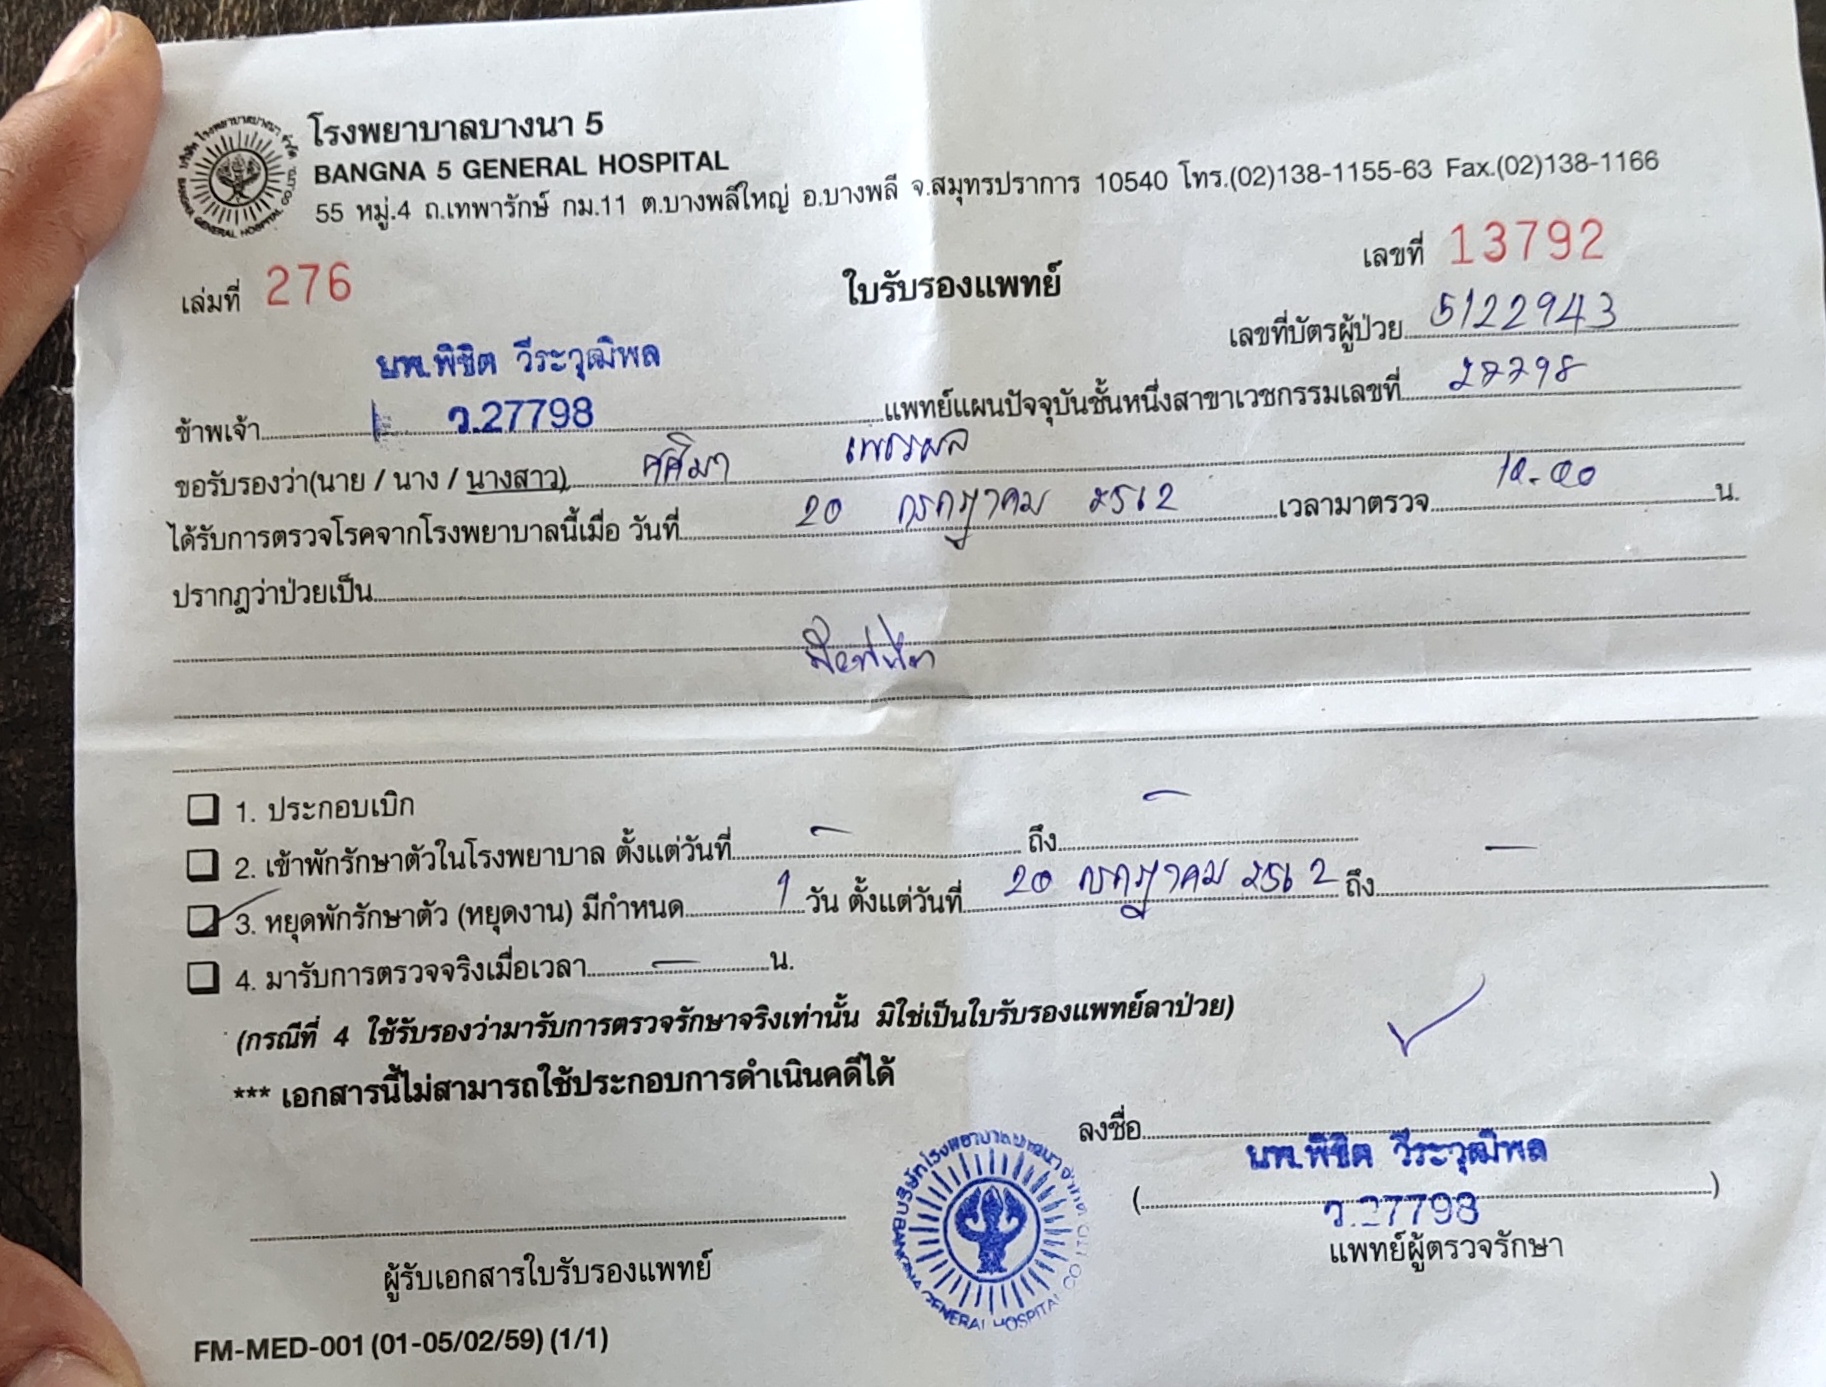 โรงพยาบาลบางนา 5
BANGNA 5 GENERAL HOSPITAL
55 หมู่.4 ถ.เทพารักษ์ กม.11 ต.บางพลีใหญ่ อ.บางพลี จ.สมุทรปราการ 10540 โทร.(02)138-1155-63 Fax.(02)138-1166
เล่มที่ 276
เลขที่ 13792
ใบรับรองแพทย์
เลขที่บัตรผู้ป่วย 5122943
นพ.พิชิต วีระวุฒิพล
ข้าพเจ้า ว.27798 แพทย์แผนปัจจุบันชั้นหนึ่งสาขาเวชกรรมเลขที่ 27798
ขอรับรองว่า(นาย / นาง / นางสาว) ศศิมา
ได้รับการตรวจโรคจากโรงพยาบาลนี้เมื่อ วันที่ 20 กรกฎาคม 2562 เวลามาตรวจ น.
ปรากฎว่าป่วยเป็น
1. ประกอบเบิก
2. เข้าพักรักษาตัวในโรงพยาบาล ตั้งแต่วันที่ - ถึง -
3. หยุดพักรักษาตัว (หยุดงาน) มีกำหนด 1 วัน ตั้งแต่วันที่ 20 กรกฎาคม 2562 ถึง -
4. มารับการตรวจจริงเมื่อเวลา - น.
(กรณีที่ 4 ใช้รับรองว่ามารับการตรวจรักษาจริงเท่านั้น มิใช่เป็นใบรับรองแพทย์ลาป่วย)
*** เอกสารนี้ไม่สามารถใช้ประกอบการดำเนินคดีได้
ลงชื่อ
นพ.พิชิต วีระวุฒิพล
( ว.27798 )
แพทย์ผู้ตรวจรักษา
ผู้รับเอกสารใบรับรองแพทย์
BANGNA GENERAL HOSPITAL CO.LTD.
FM-MED-001 (01-05/02/59) (1/1)